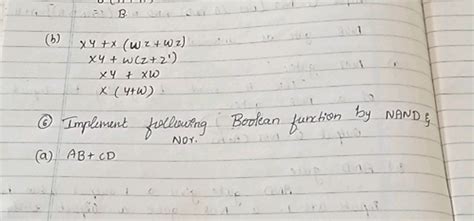 B
(b) xy + x (wz + wz)
xy + w(z + z')
xy + xw
x (y+w)
⑥ Implement following Boolean function by NAND &
Nor.
(a) AB + CD